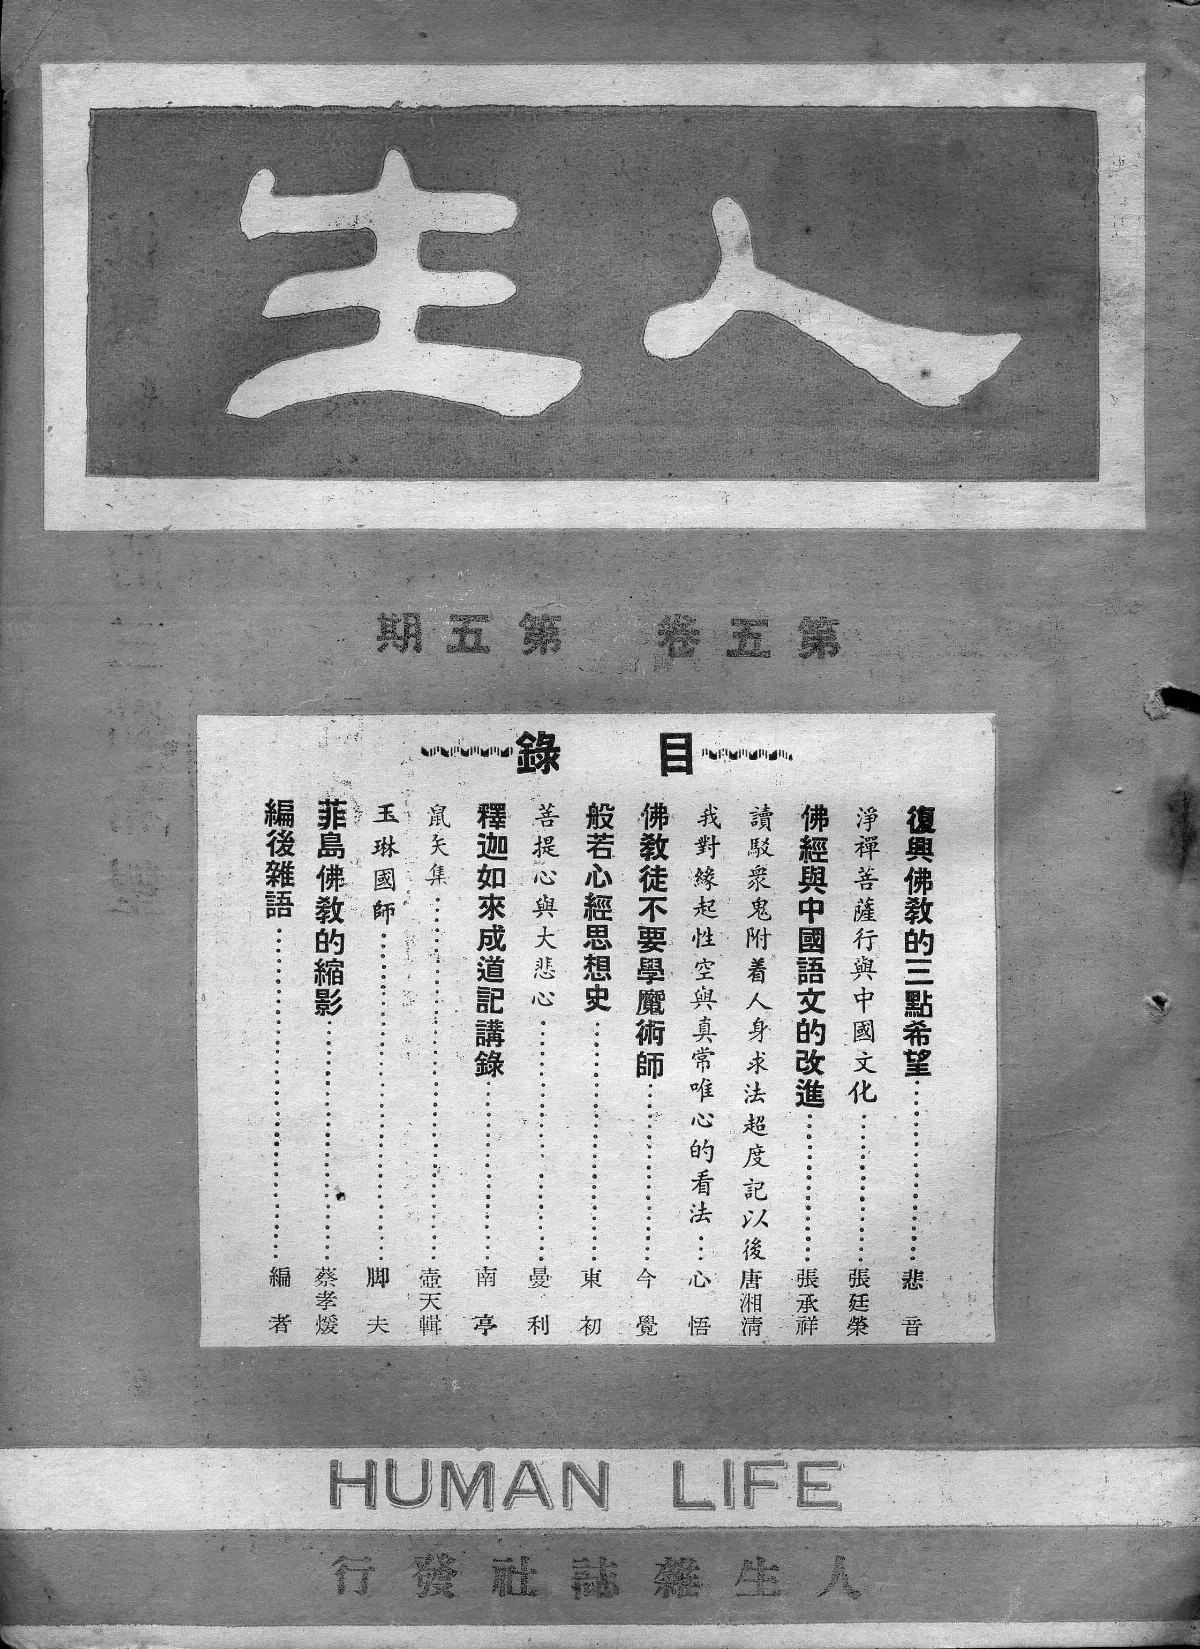 人生
第五卷 第五期
目錄
復興佛教的三點希望……悲音
淨禪菩薩行與中國文化……張廷榮
佛經與中國語文的改進……張承祥
讀駁衆鬼附着人身求法超度記以後 唐湘清
我對緣起性空與真常唯心的看法…心悟
佛教徒不要學魔術師……今覺
般若心經思想史……東初
菩提心與大悲心……曼利
釋迦如來成道記講錄……南亭
鼠矢集……壺天輯
玉琳國師……脚夫
菲島佛教的縮影……蔡孝煖
編後雜語……編者
HUMAN LIFE
人生雜誌社發行